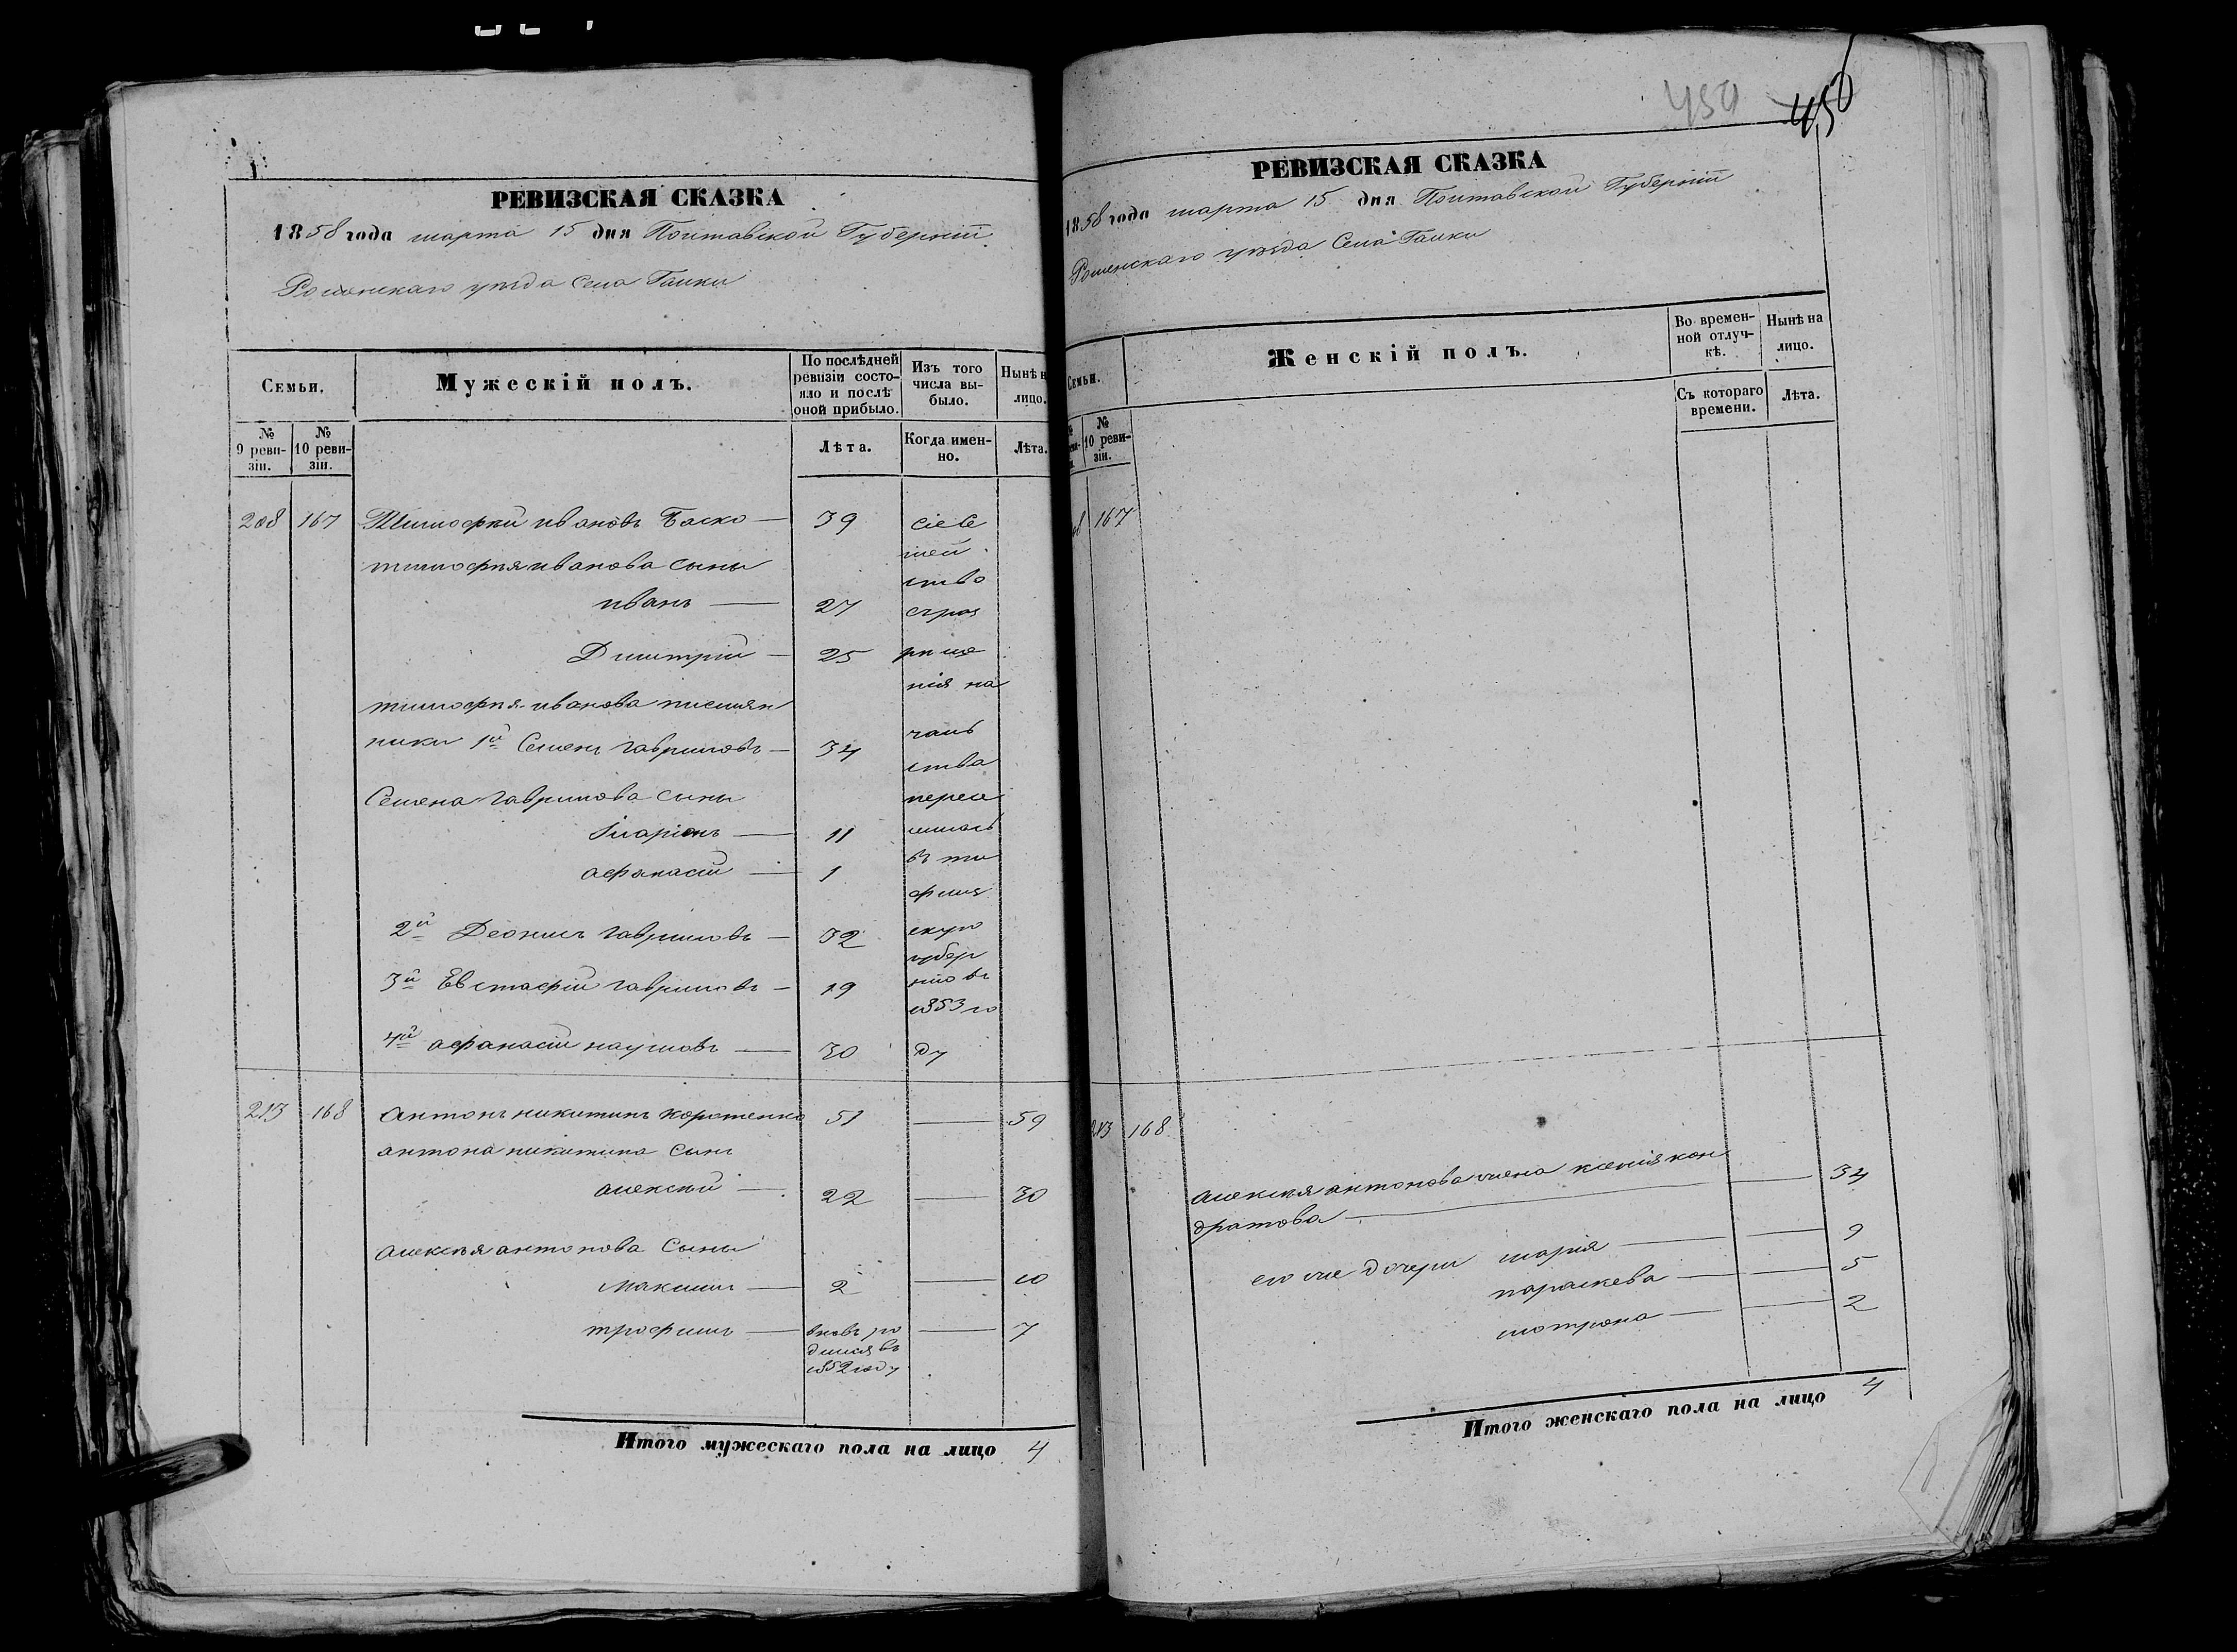 450 450
РЕВИЗСКАЯ СКАЗКА
1858 года марта 15 дня Полтавской Губерніи
Роменскаго уезда Села Галки
Семьи.
Мужескій полъ.
По послѣдней ревизіи состояло и послѣ оной прибыло.
Изъ того числа выбыло.
Нынѣ н лицо.
№ 9 ревизіи.
№ 10 ревизіи.
Лѣта.
Когда именно.
Лѣта.
208 167 Тимофей ивановъ Баско — 39 сіе Се
мей
тимофея иванова сыны
ство
иванъ — 27 съраз
Димитрій — 25 реше
нія на
тимофея иванова племян
чаль
ники 1й Семенъ гавриловъ — 34
ства
Семена гаврилова сыны
пересе
Іларіонъ — 11 лилось
въ та
афанасій — 1
2й Деонис гавриловъ — 32 скую
губер
3й Евстафій гавриловъ — 19 нію въ
1853 го
4й афанасій наумовъ — 30 ду
213 168 антонъ никитинъ коротенко 51 — 59
антона никитина сынъ
алексей — 22 — 30
алексея антонова сыны
максимъ — 2 — 10
трофимъ — вновь ро — 7
дился въ
1852 году
Итого мужескаго пола на лицо 4
РЕВИЗСКАЯ СКАЗКА
1858 года марта 15 дня Полтавской Губерніи
Роменскаго уезда Села Галки
Семьи.
Женскій полъ.
Во временной отлучкѣ.
Нынѣ на лицо.
№ 10 ревизіи.
Съ котораго времени.
Лѣта.
167
213 168
алексея антонова жена ксенія кон
дратова — 34
его же дочери марія — 9
параскева — 5
мотрона — 2
Итого женскаго пола на лицо 4